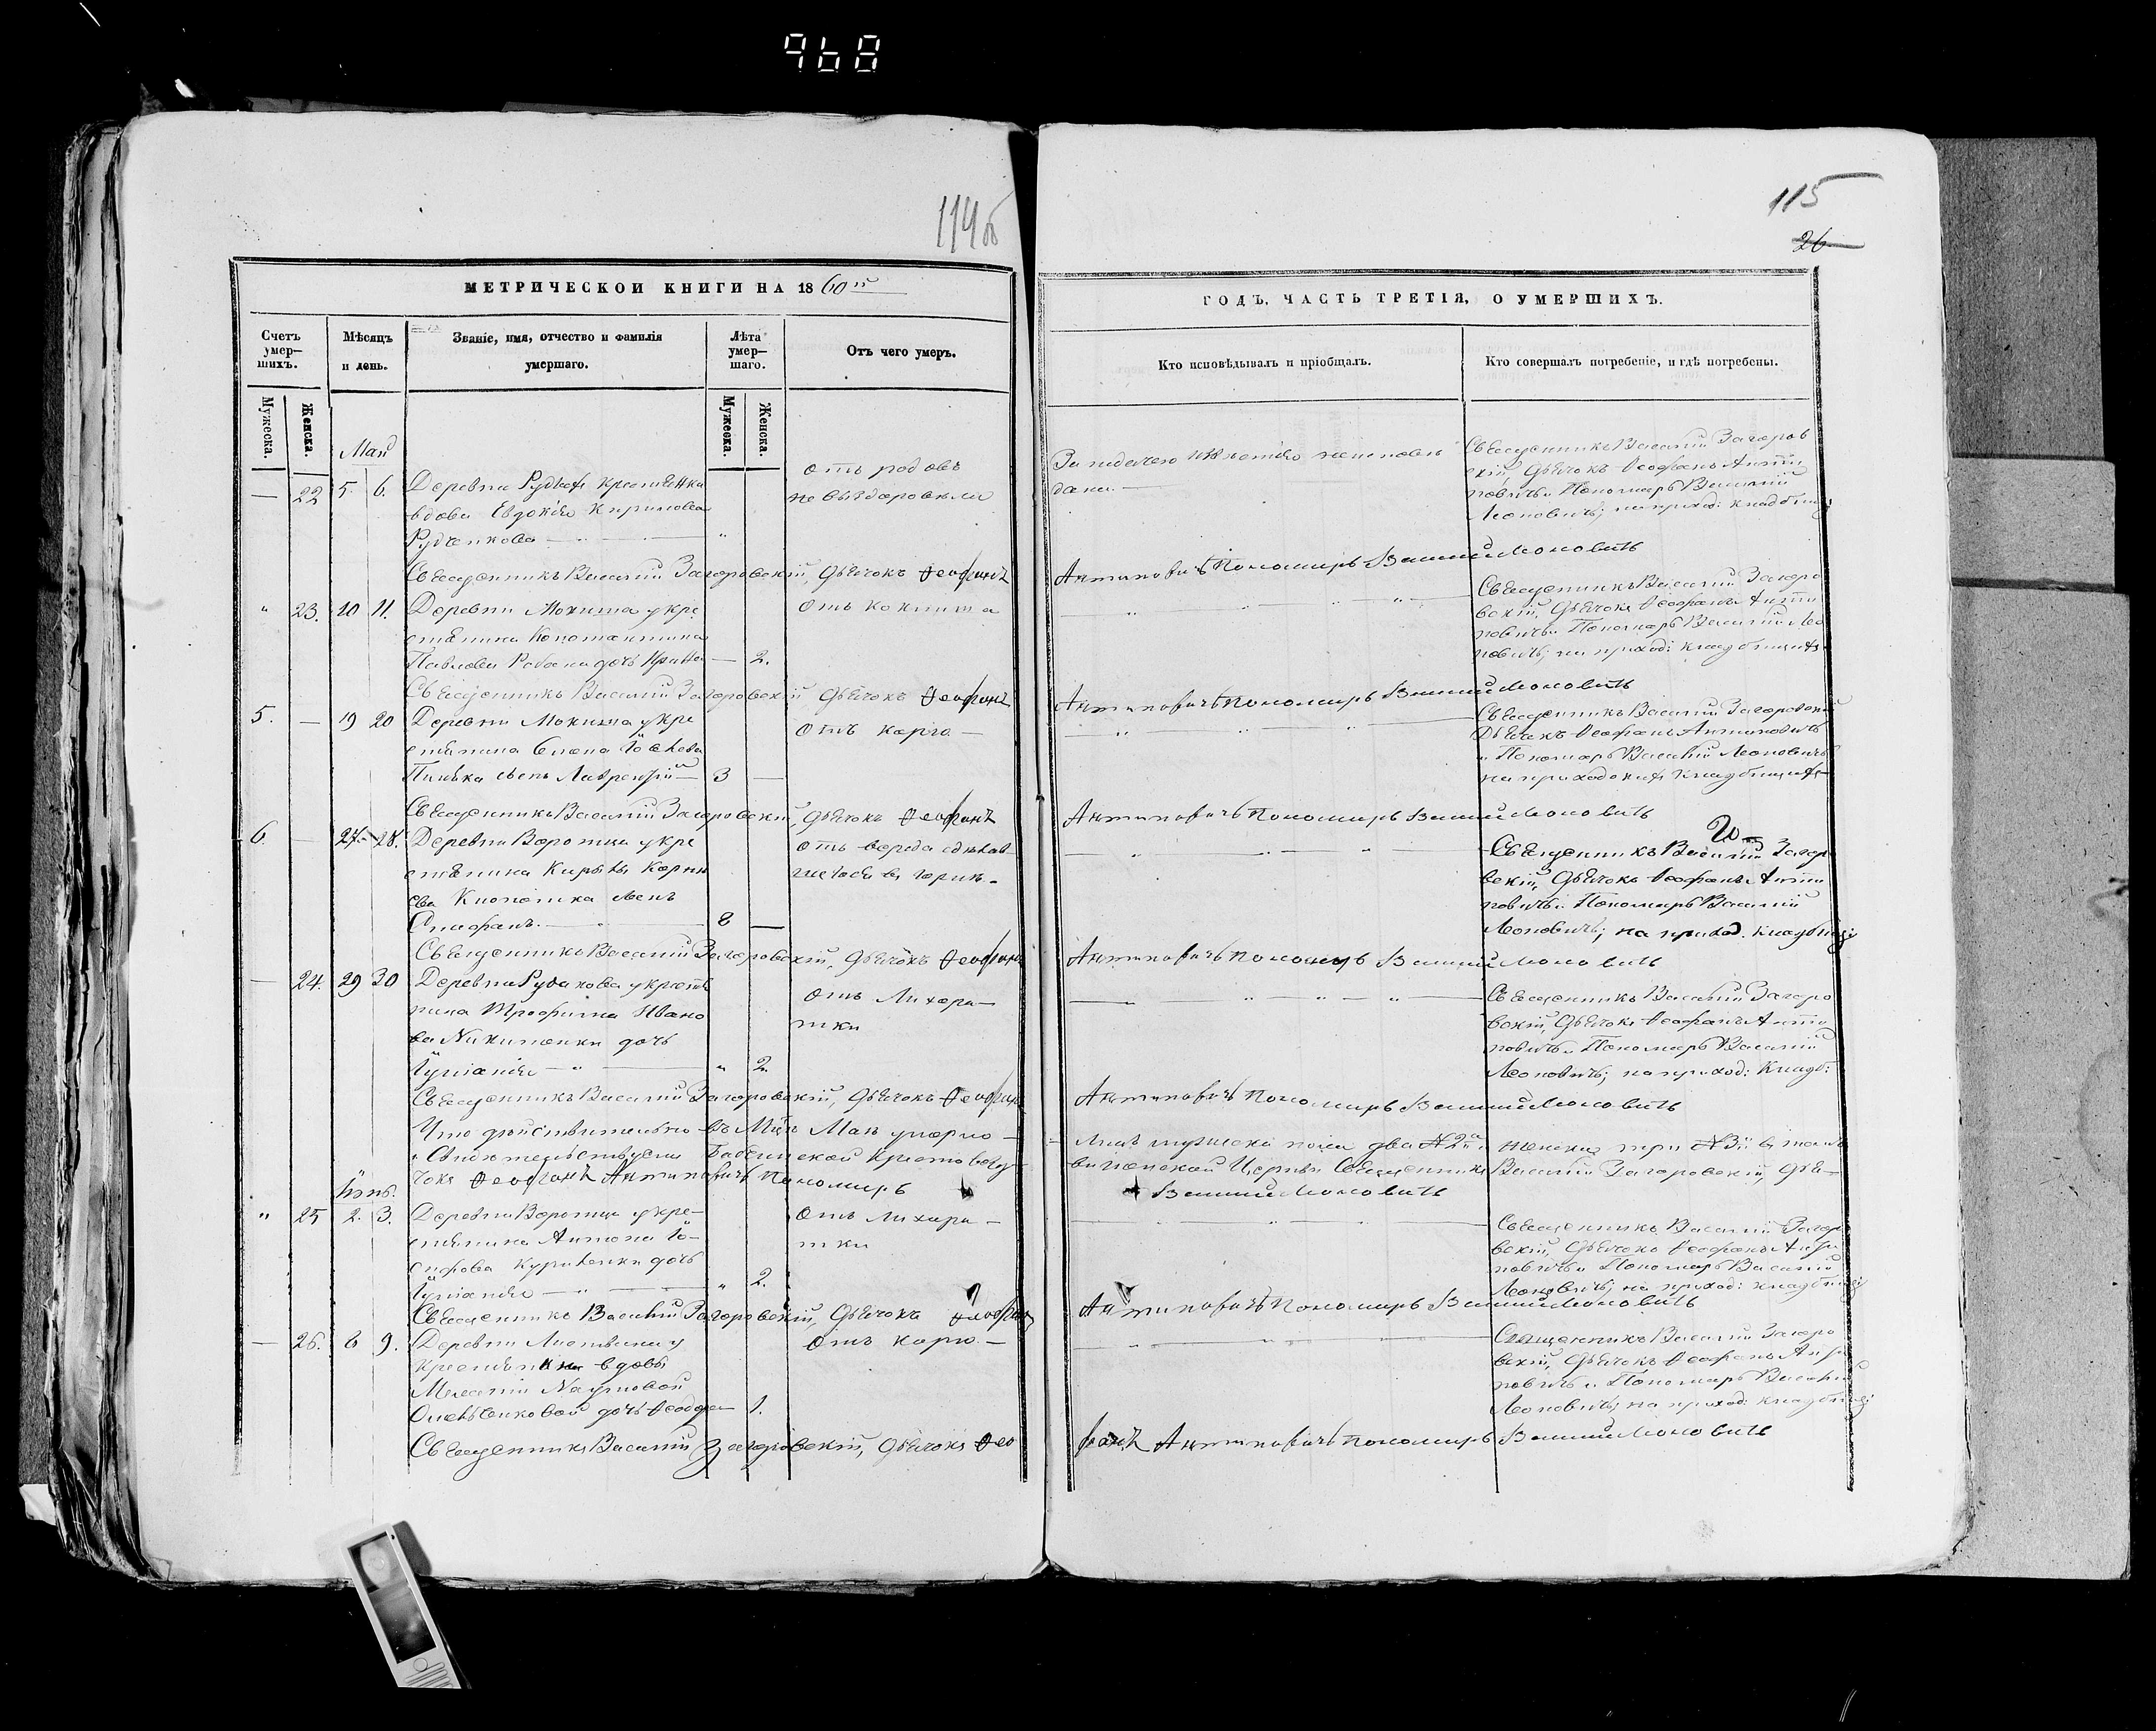 968
114об
115
26
МЕТРИЧЕСКОЙ КНИГИ НА 1860й
ГОДЪ, ЧАСТЬ ТРЕТІЯ, О УМЕРШИХЪ.
Счетъ умер-шихъ.
Мужеска.
Женска.
Мѣсяцъ и день.
Званіе, имя, отчество и фамилія умершаго.
Лѣта умер-шаго.
Мужеска.
Женска.
Отъ чего умеръ.
Кто исповѣдывалъ и пріобщалъ.
Кто совершалъ погребеніе, и гдѣ погребены.
Май
22 5. 6. Деревни крестьянка
вдова Евдокія Кирилова
Рудченкова
отъ родовъ
не выздоровела
Священникъ Василій Загоров
скій, Дьячокъ Ѳеофанъ Анти
повичъ и Пономарь Василій
Леоновичъ; на приход: кладбищѣ
Священникъ Василій Загоровскій, Дьячокъ Ѳеофанъ
Антиповичъ Пономарь Василій Леоновичъ
23. 10 11. Деревни Мокиша у кре
стьянина Константина
Павлова дочь — 2.
Отъ коклюша
Священникъ Василій Загоро
вскій, Дьячокъ Ѳеофанъ Анти
повичъ и Пономарь Василій Лео
новичъ; на приход: кладбищѣ
Священникъ Василій Загоровскій Дьячокъ Ѳеофанъ
Антиповичъ Пономарь Василій Леоновичъ
5. — 19 20 Деревни Мокиша у кре
стьянина
сынъ Лаврентій — 3 —
Отъ корча —
Священникъ Василій Загоровскій
Дьячекъ Ѳеофанъ Антиповичъ
и Пономарь Василій Леоновичъ
на приходскомъ кладбищѣ
Священникъ Василій Загоровскій, Дьячокъ Ѳеофанъ
Антиповичъ Пономарь Василій Леоновичъ
6. — 27. 28. Деревни Воротца у кре
стьянина Кирилы Корни
ева сынъ
Стефанъ. — 8 —
Отъ вереда сдѣлав
шегося въ горлѣ.
Священникъ Василій Загоро
вскій, Дьячокъ Ѳеофанъ Анти
повичъ и Пономарь Василій
Леоновичъ; на приход. кладбищѣ
Священникъ Василій Загоровскій, Дьячокъ Ѳеофанъ
Антиповичъ Пономарь Василій Леоновичъ
— 24. 29 30 Деревни Рудакова у кресть
янина Трофима Ивано
ва Никитенки дочь
Іуліанія — 2.
Отъ Лихора—
тки
Священникъ Василій Загоро
вскій, Дьячокъ Ѳеофанъ Анти
повичъ и Пономарь Василій
Леоновичъ; на приход: Кладб:
Священникъ Василій Загоровскій, Дьячокъ Ѳеофанъ
Антиповичъ Пономарь Василій Леоновичъ
Что дѣйствительно въ Мцѣ Маѣ умерло —
мужеска пола два №2й и женска три №3й въ томъ
Свидѣтельствуемъ Бабчинской Крестовоздвиженской Церкви Священникъ Василій Загоровскій, Дья-
чокъ Ѳеофанъ Антиповичъ Пономарь Василій Леоновичъ
Іюнь.
25 2. 3. Деревни Воротца у кре-
стьянина Антона Іо-
сифова дочь
Іуліанія — 2.
Отъ лихора —
тки
Священникъ Василій Загоро
вскій, Дьячокъ Ѳеофанъ Анти
повичъ и Пономарь Василій
Леоновичъ; на приход: кладбищѣ
Священникъ Василій Загоровскій, Дьячокъ Ѳеофанъ
Антиповичъ Пономарь Василій Леоновичъ
— 26. 8 9. Деревни у
крестьянки вдовы
Меланіи Наумовой
дочь — 1.
Отъ корю. —
Священникъ Василій Загоро
вскій, Дьячокъ Ѳеофанъ Анти
повичъ и Пономарь Василій
Леоновичъ; на приход: кладбищѣ
Священникъ Василій Загоровскій, Дьячокъ Ѳео
фанъ Антиповичъ Пономарь Василій Леоновичъ